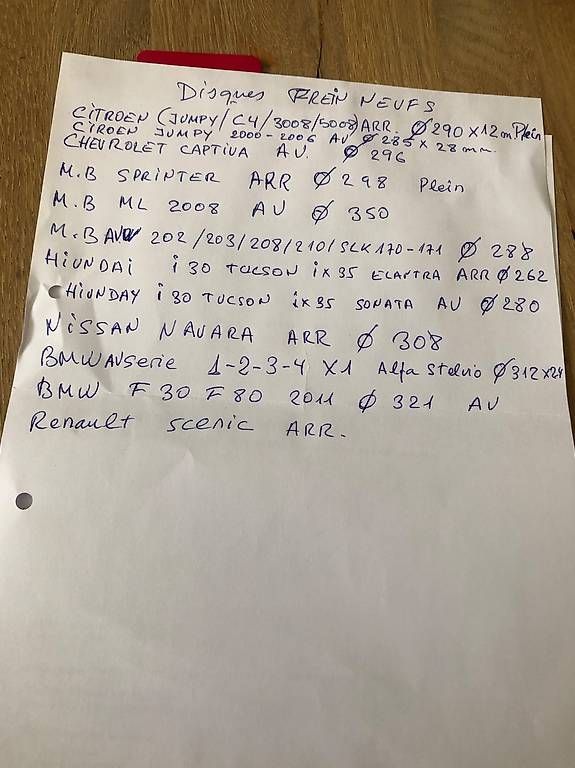 Disques FREIN NEUFS
CITROEN (JUMPY / C4 / 3008 / 5008) ARR. Ø 290 X 12 mm Plein
CIROEN JUMPY 2000-2006 AV Ø 285 X 28 mm
CHEVROLET CAPTIVA AV. Ø 296
M.B SPRINTER ARR Ø 298 Plein
M.B ML 2008 AV Ø 350
M.B AV 202/203/208/210/SLK 170-171 Ø 288
HIUNDAI i 30 TUCSON ix 35 ELANTRA ARR Ø 262
HIUNDAY i 30 TUCSON ix 35 SONATA AV Ø 280
NISSAN NAVARA ARR Ø 308
BMW AV Serie 1-2-3-4 X1 Alfa Stelvio Ø 312 X 24
BMW F 30 F 80 2011 Ø 321 AV
Renault scenic ARR.